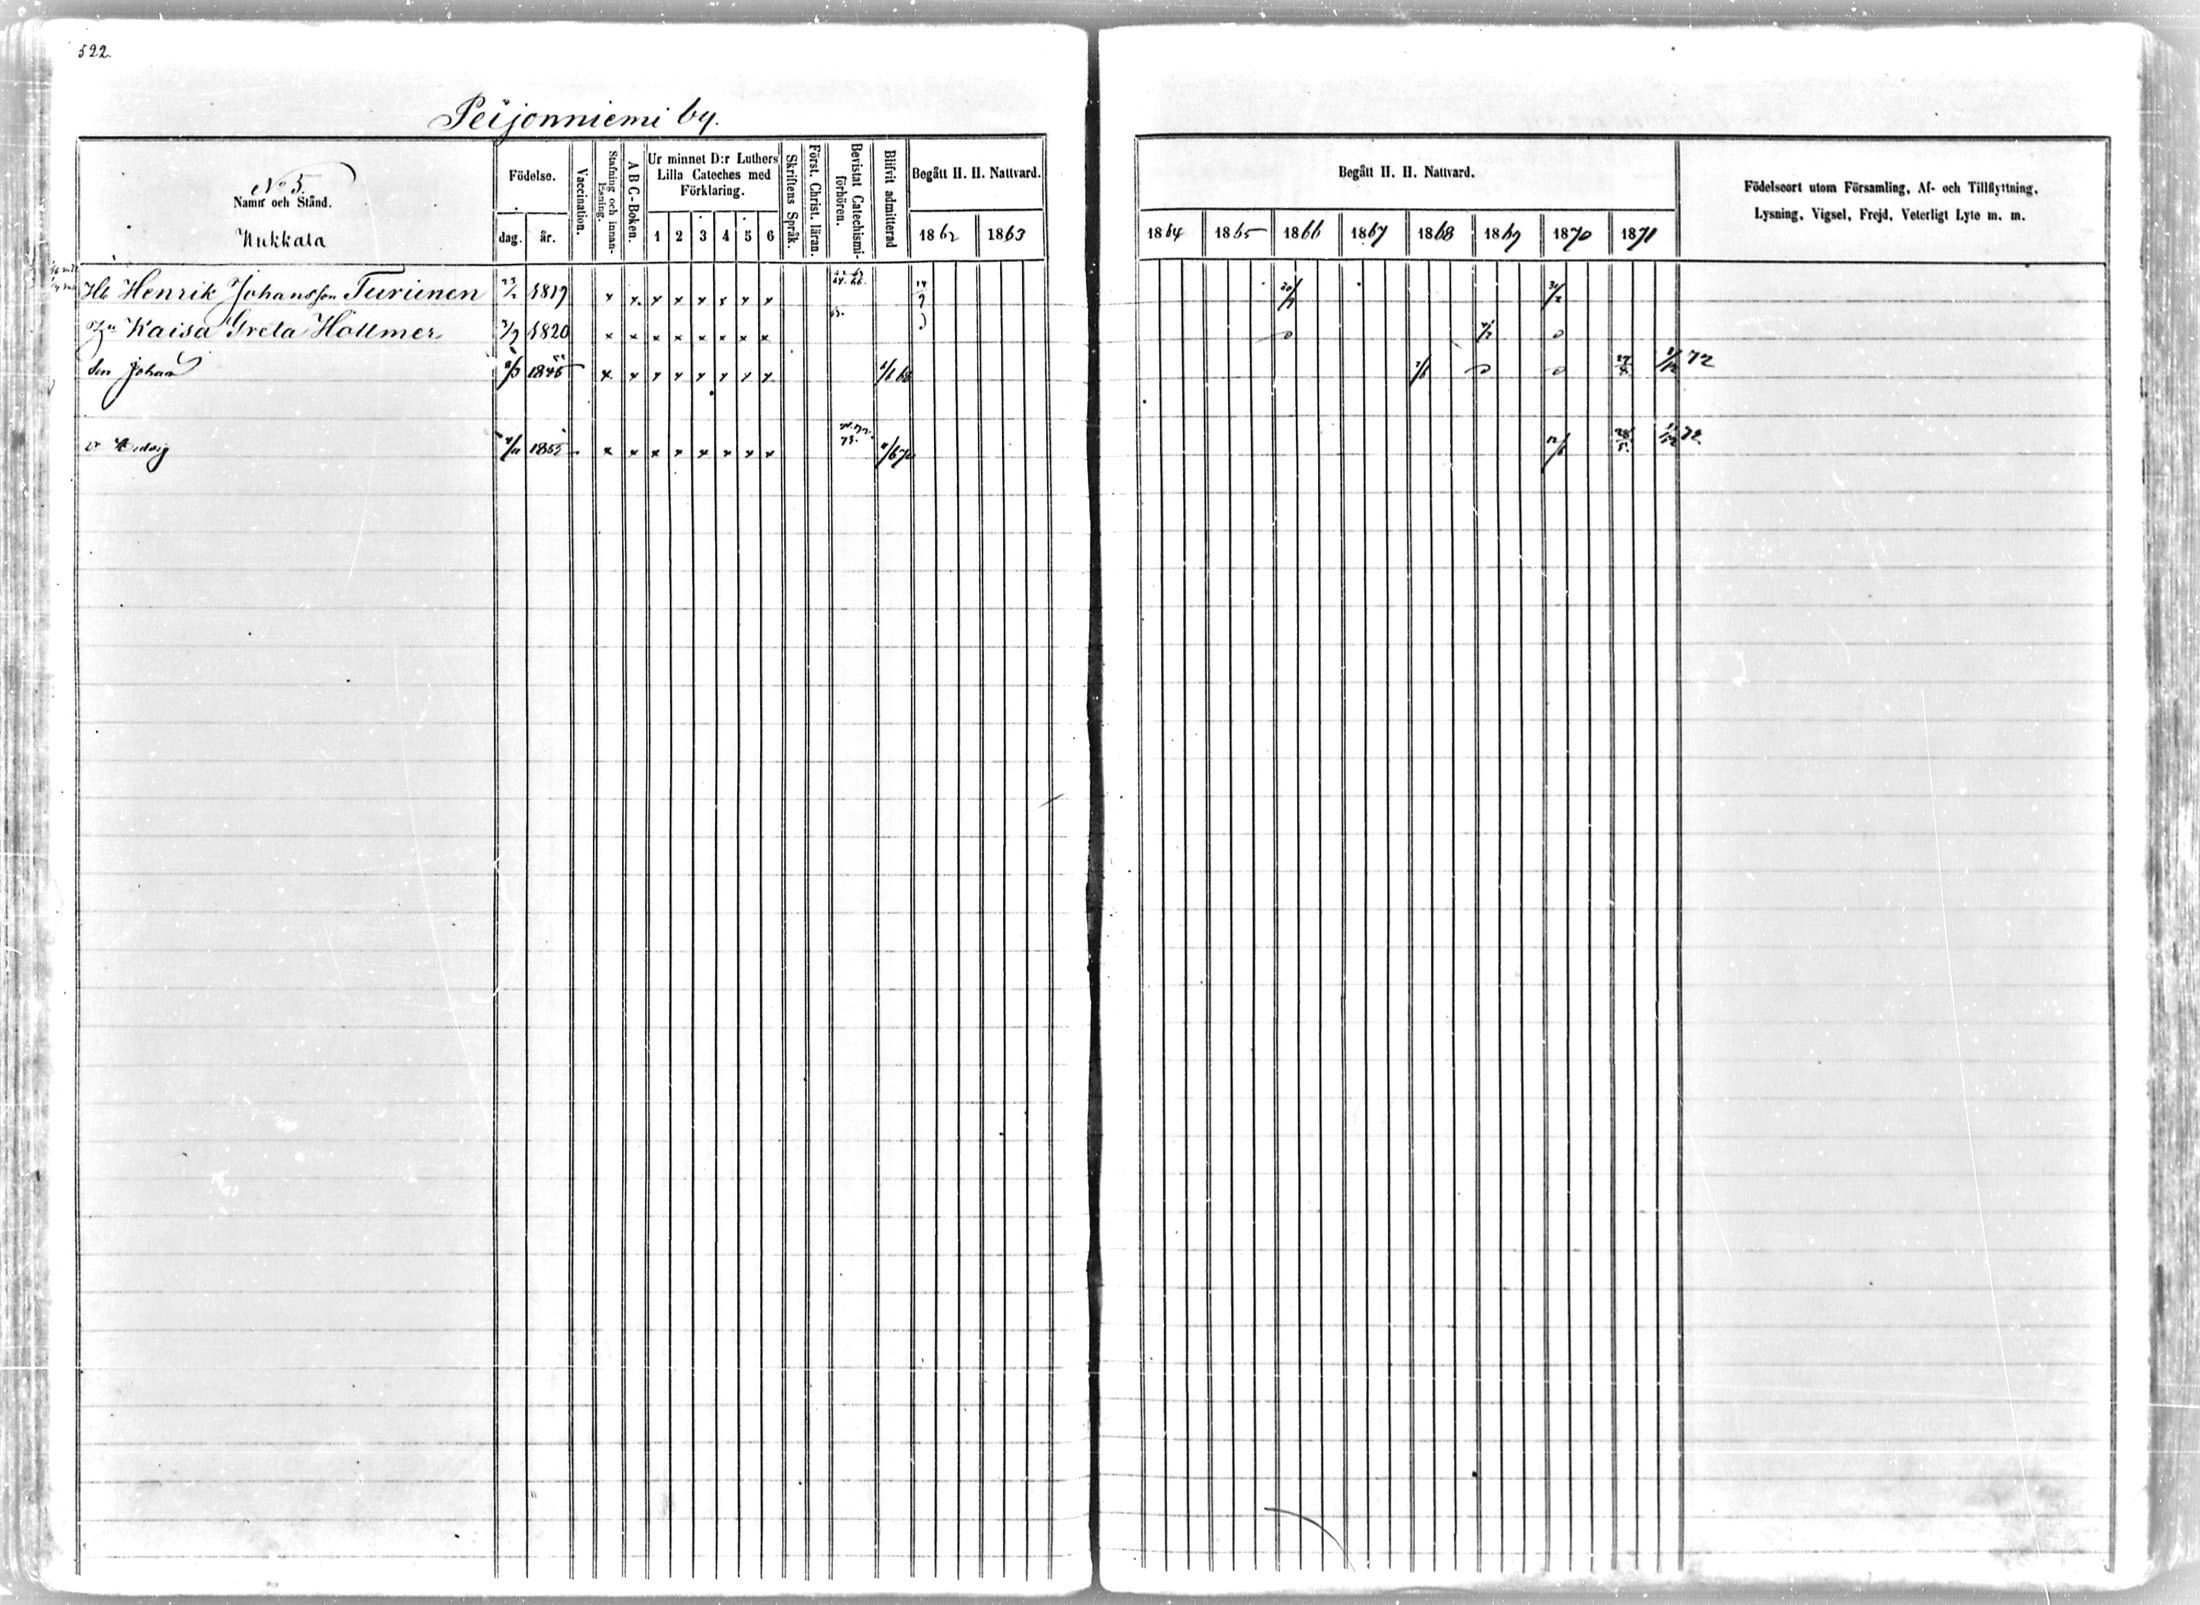 522.
Peijonniemi by.
No 5.
Namn och Stånd.
Nukkala
Födelse.
dag. år.
Vaccination.
Stafning och innan-Läsning.
A B C-Boken.
Ur minnet D:r Luthers
Lilla Cateches med
Förklaring.
1 2 3 4 5 6
Skriftens Språk.
Först. Christ. läran.
Bevistat Catechismi-förhören.
Blifvit admitterad
Begått H. H. Nattvard.
1862 1863
Begått H. H. Nattvard.
1864 1865 1866 1867 1868 1869 1870 1871
Födelseort utom Församling, Af- och Tillflyttning,
Lysning, Vigsel, Frejd, Veterligt Lyte m. m.
Henrik Johansson Turunen 1819 x x x x x x x x
Kaisa Greta Holtmer 1820 x x x x x x x x
Son Johan x x x x x x x x 72
Hedvig 1855 x x x x x x x x 72